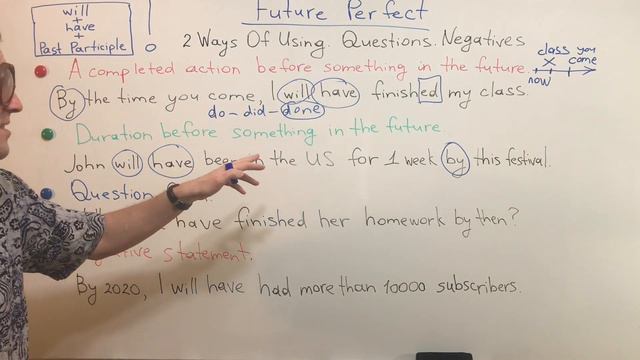 will
+
have
+
Past Participle
Future Perfect
2 Ways Of Using. Questions. Negatives
A completed action before something in the future.
class you
X come
now
By the time you come, I will have finished my class.
do - did - done
Duration before something in the future.
John will have been in the US for 1 week by this festival.
Question
have finished her homework by then?
statement.
By 2020, I will have had more than 10000 subscribers.